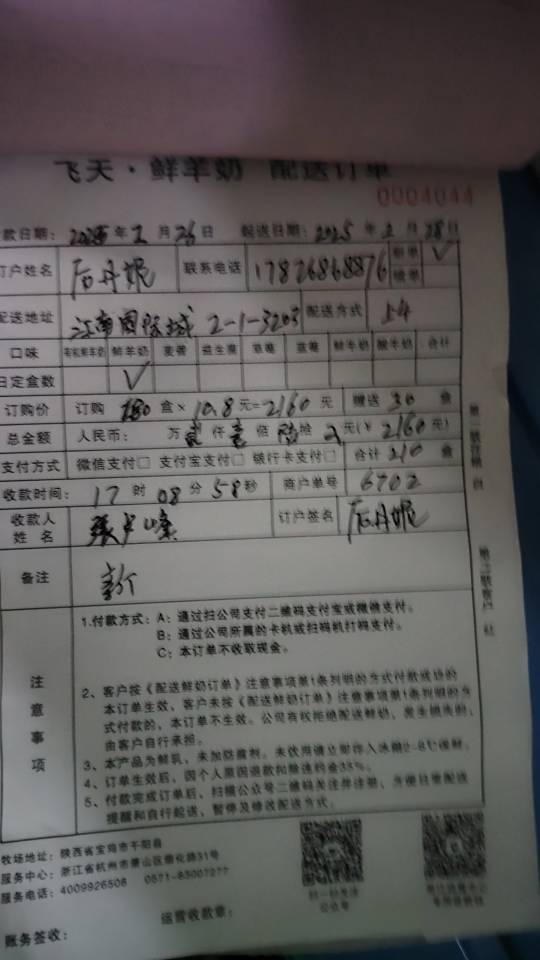 飞天·鲜羊奶 配送订单
0004044
款日期: 2025年2月26日 起送日期: 2025年2月28日
订户姓名 后丹妮 联系电话 17826868876 新单 √ 续单
配送地址 江南国际城 2-1-3203 配送方式 54
口味 有机鲜羊奶 鲜羊奶 麦香 益生菌 草莓 蓝莓 鲜牛奶 酸羊奶 合计
日定盒数 √
订购价 订购 180 盒× 10.8元=2160元 赠送 30 盒
总金额 人民币: 万贰仟壹佰陆拾 元(¥ 2160元)
支付方式 微信支付□ 支付宝支付□ 银行卡支付□ 合计 210 盒
收款时间: 17时08分58秒 商户单号 6702
收款人姓名 订户签名 后丹妮
备注
注意事项
1.付款方式: A: 通过扫公司支付二维码支付宝或微信支付。
B: 通过公司所属的卡机或扫码机打码支付。
C: 本订单不收取现金。
2、客户按《配送鲜奶订单》注意事项第1条列明的方式付款成功的
本订单生效、客户未按《配送鲜奶订单》注意事项第1条列明的方
式付款的、本订单不生效。公司有权拒绝配送鲜奶,发生损失的,
由客户自行承担。
3、本产品为鲜乳、未加防腐剂。未饮用请立即存入冰箱2-8℃保鲜。
4、订单生效后,因个人原因退款扣除违约金35%。
5、付款完成订单后、扫描公众号二维码关注并注册,方便日常配送
提醒和自行起送、暂停及修改配送方式。
牧场地址: 陕西省宝鸡市千阳县
服务中心: 浙江省杭州市萧山区德化路31号
服务电话: 4009926506 0571-83007277
扫一扫关注
公众号
运营收款章:
账务签收: